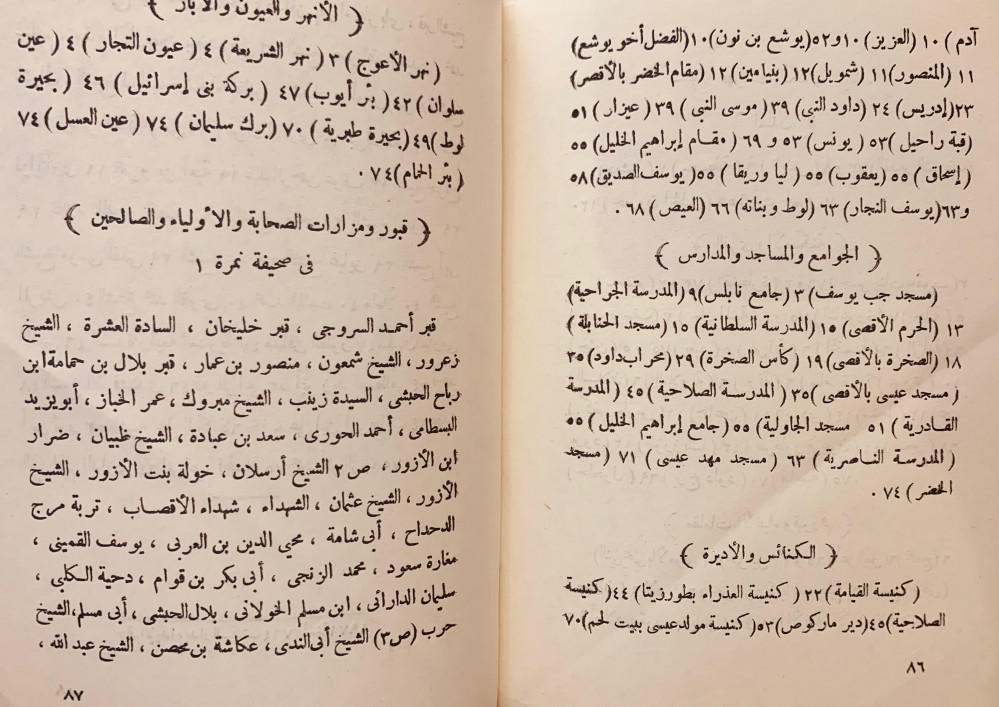 آدم ) ١٠ ( العزيز ) ١٠ و٥٢( يوشع بن نون)١٠( الفضل أخو يوشع)
١١ ( المنصور)١١ ( شمويل)١٢( بنيامين )١٢( مقام الخضر بالأقصر)
٢٣(إدريس ) ٢٤ (داود النبي ) ٣٩ ( موسى النبي ) ٣٩ ( عيزار ) ٥١
(قبة راحيل )٥٣ ( يونس) ٥٣ و ٦٩ ( مقام إبراهيم الخليل) ٥٥
( إسحاق ) ٥٥ (يعقوب) ٥٥ ( ليا وريقا ) ٥٥( يوسف الصديق)٥٨
و٦٣(يوسف النجار) ٦٣ ( لوط و بناته) ٦٦ ( العيص ) ٦٨ .
﴿ الجوامع والمساجد والمدارس ﴾
( مسجد جب يوسف) ٣ ( جامع نابلس )٩( المدرسة الجراحية)
١٣ (الحرم الأقصى ) ١٥ (المدرسة السلطانية )١٥ ( مسجد الحنابلة )
١٨ ( الصخرة بالأقصى) ١٩ ( كأس الصخرة) ٢٩ ( محراب داود) ٣٥
( مسجد عيسى بالأقصى )٣٥( المدرسة الصلاحية ) ٤٥ ( المدرسة
القادرية ) ٥١ مسجد الجاولية) ٥٥ ( جامع إبراهيم الخليل ) ٥٥
( المدرسة الناصرية ) ٦٣ ( مسجد مهد عيسى ) ٧١ ( مسجد
الخضر ) ٧٤ .
﴿ الكنائس والأديرة ﴾
( كنيسة القيامة )٢٢ ( كنيسة العذراء بطورزيتا ) ٤٤( كنيسة
الصلاحية)٤٥( دير ماركوص )٥٣( كنيسة مولد عيسى ببيت لحم)٧٠
٨٦
﴿ الأنهر والعيون والآبار ﴾
( نهر الأعوج ) ٣ ( نهر الشريعة ) ٤ ( عيون التجار ) ٤ ( عين
سلوان ) ٤٢ ( بئر أيوب) ٤٧ ( بركة بنى إسرائيل ) ٤٦ ( بحيرة
لوط)٤٩( بحيرة طبرية ) ٧٠ (برك سليمان ) ٧٤ ( عين العسل ) ٧٤
( بئر الحمام)٧٤ .
﴿ قبور ومزارات الصحابة والأولياء والصالحين ﴾
فى صحيفة نمرة ١
قبر أحمد السروجى ، قبر خليخان ، السادة العشرة ، الشيخ
زعرور ، الشيخ شمعون ، منصور بن عمار ، قبر بلال بن حمامة ابن
رباح الحبشى ، السيدة زينب ، الشيخ مبروك ، عمر الخباز ، أبو يزيد
البسطامى ، أحمد الحورى ، سعد بن عبادة ، الشيخ ظبيان ، ضرار
ابن الأزور ، ص ٢ الشيخ أرسلان ، خولة بنت الأزور ، الشيخ
الأزور ، الشيخ عثمان ، الشهداء ، شهداء الأقصاب ، تربة مرج
الدحداح ، أبى شامة ، محيي الدين بن العربى ، يوسف القمينى ،
مغارة سعود ، محمد الزنجى ، أبى بكر بن قوام ، دحية الكلبى ،
سليمان الدارانى ، ابن مسلم الخولانى ، بلال الحبشى ، أبى مسلم، الشيخ
حرب (ص٣) الشيخ أبى الندى ، عكاشة بن محصن ، الشيخ عبد الله ،
٨٧